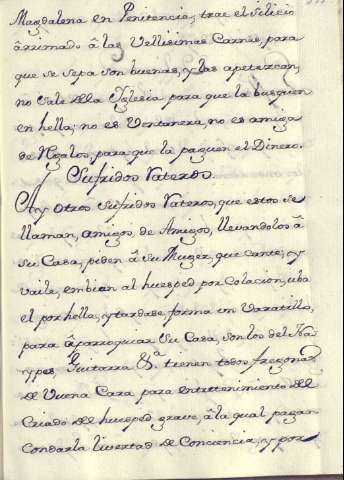 Magdalena en Penitencia, trae el silicio
ârrimado â las Vellisimas Carnes, para
que se sepa son buenas, y las apetezcan,
no sale dela Iglesia para que la busquen
en hella; no es Ventanera, no es amiga
de Regalos, para que la paguen el Dinero.
Sufridos Vateros.
Ay otros sufridos Vateros, que estos se
llaman, amigos, de Amigos, llevandolos â
su Casa, piden â su Muger, que cante, y
vaile, embian al huesped por Colacion, uba
el por hella, y tardase, forma un Varatillo,
para âparroquiar su Casa, son los del
Guitarra &a. tienen todos fregona
de Vuena Cara, para entretenimiento del
Criado del huesped grave, â la qual pagan
con darla livertad de Conciencia, y por